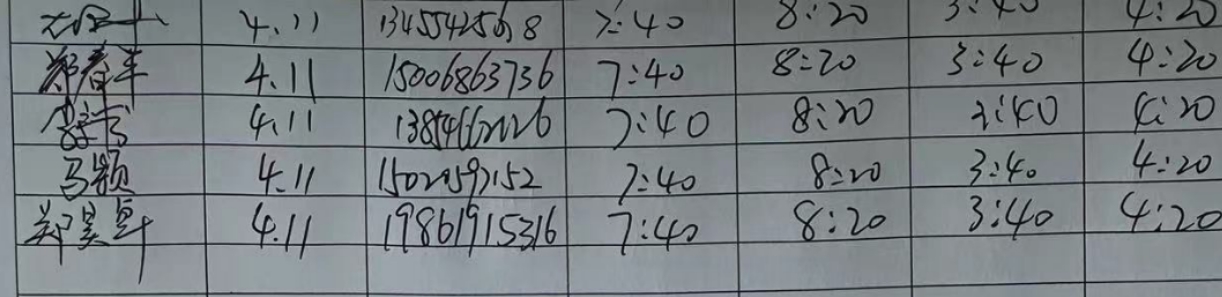 4.11 13455425618 7:40 8:20 3:40 4:20
郑春羊 4.11 15006863736 7:40 8:20 3:40 4:20
4.11 7:40 8:20 3:40 4:20
马颖 4.11 7:40 8:20 3:40 4:20
郑昊 4.11 19861915316 7:40 8:20 3:40 4:20